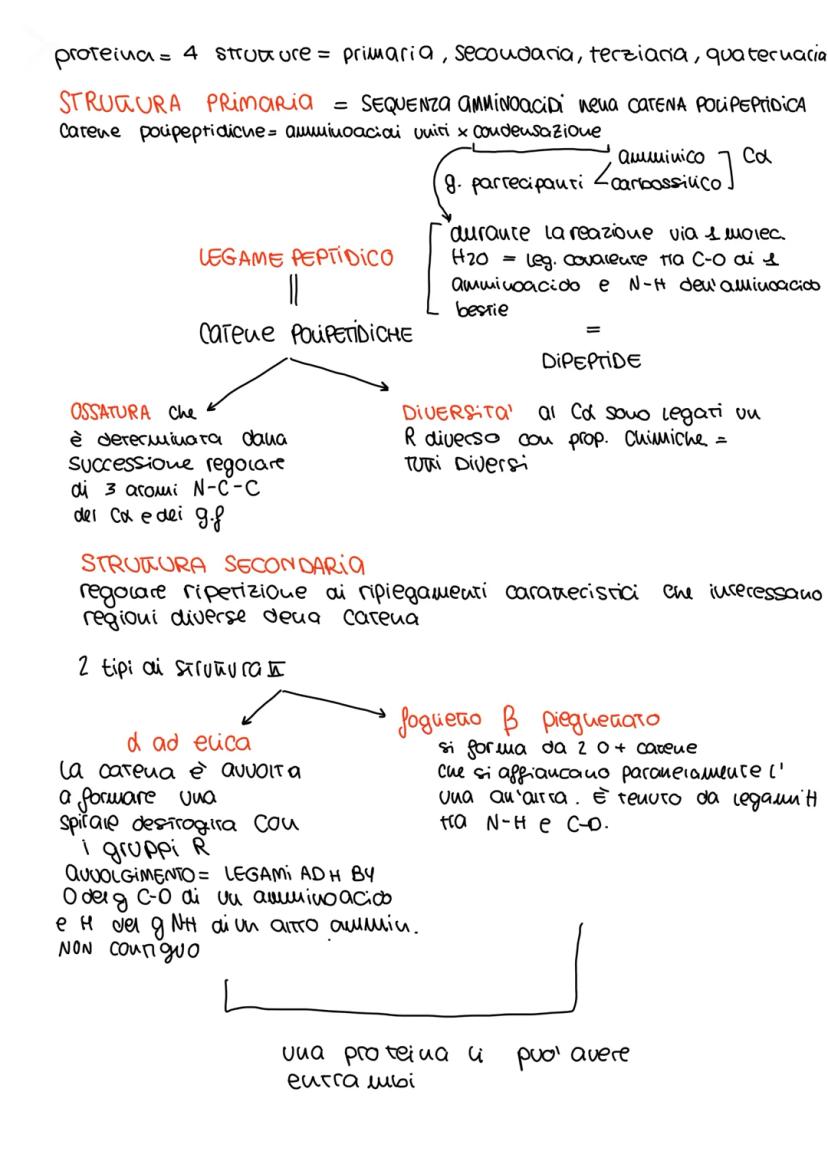 proteina = 4 strutture = primaria, secondaria, terziaria, quaternaria
STRUTTURA PRIMARIA = SEQUENZA AMMINOACIDI nella CATENA POLIPEPTIDICA
Catene polipeptidiche = amminoacidi uniti x condensazione
g. partecipanti < amminico carbossilico ] Cα
durante la reazione via 1 molec.
H2O = leg. covalente tra C-O di 1
amminoacido e N-H dell'aminoacido
bestie
=
DIPEPTIDE
LEGAME PEPTIDICO
||
catene POLIPETIDICHE
OSSATURA che
è determinata dalla
successione regolare
di 3 atomi N-C-C
del Cα e dei g.f
DIVERSITA' al Cα sono legati un
R diverso con prop. chimiche =
TUTTI DIVERSI
STRUTTURA SECONDARIA
regolare ripetizione di ripiegamenti caratteristici che interessano
regioni diverse della catena
2 tipi di struttura II
α ad elica
la catena è avvolta
a formare una
spirale destrogira con
i gruppi R
AVVOLGIMENTO = LEGAMI AD H BY
O del g C-O di un amminoacido
e H del g NH di un altro ammin.
NON contiguo
foglietto β pieghettato
si forma da 2 o + catene
che si affiancano parallelamente l'
una all'altra. È tenuto da legami H
tra N-H e C-O.
una proteina li puo' avere
entrambi